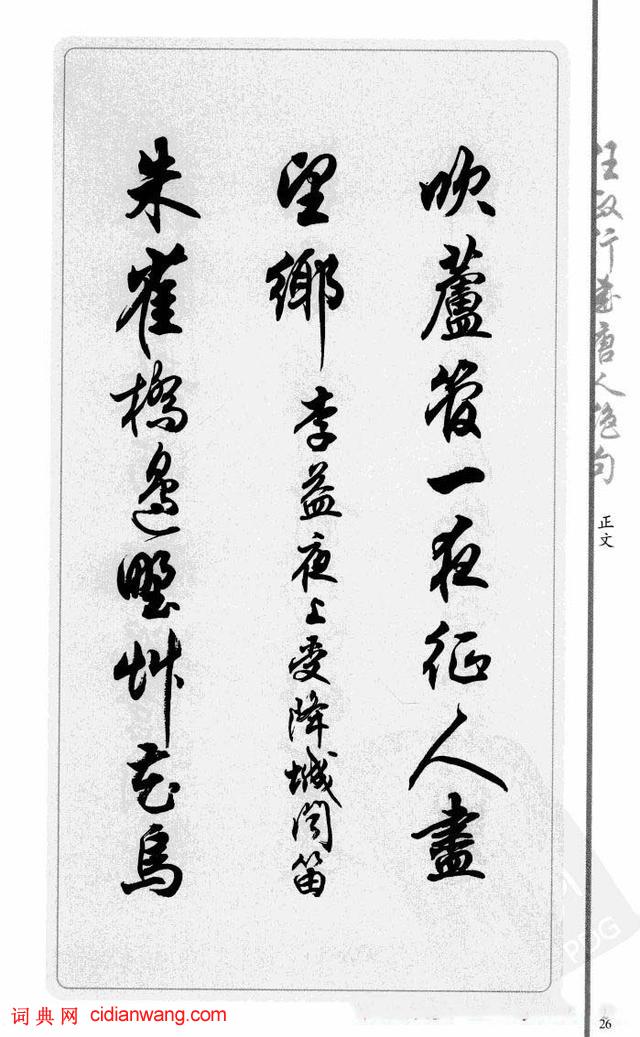 任政行書唐人絕句
正文
吹蘆管一夜征人盡
望鄉 李益夜上受降城聞笛
朱雀橋邊野艸花烏
PDG
词典网 cidianwang.com
26